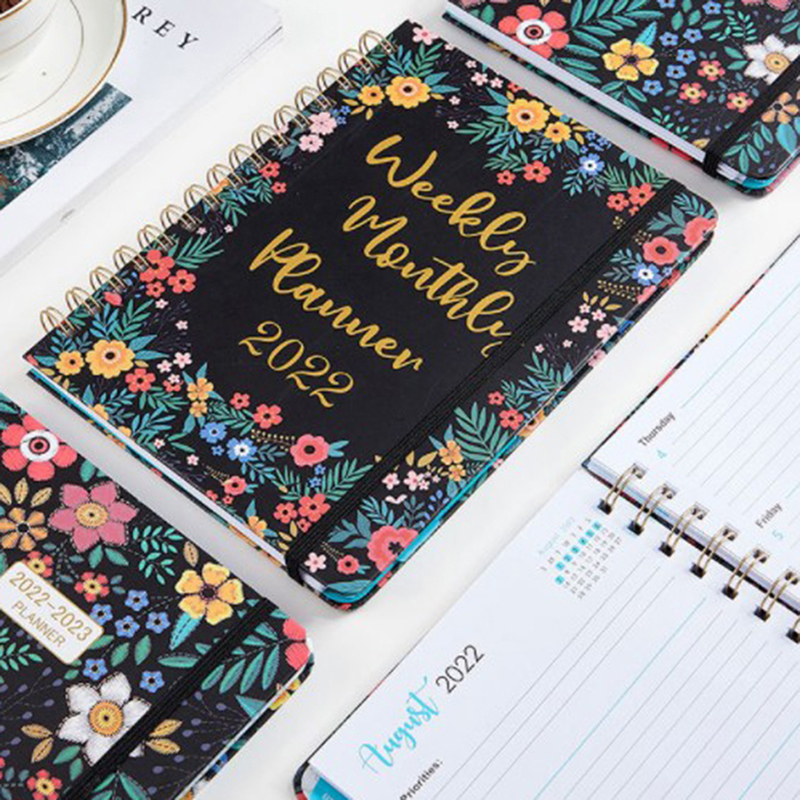 REY
Weekly
Monthly
Planner
2022
2022-2023
PLANNER
Thursday
4
Friday
5
August 2022
August 2022
Priorities: